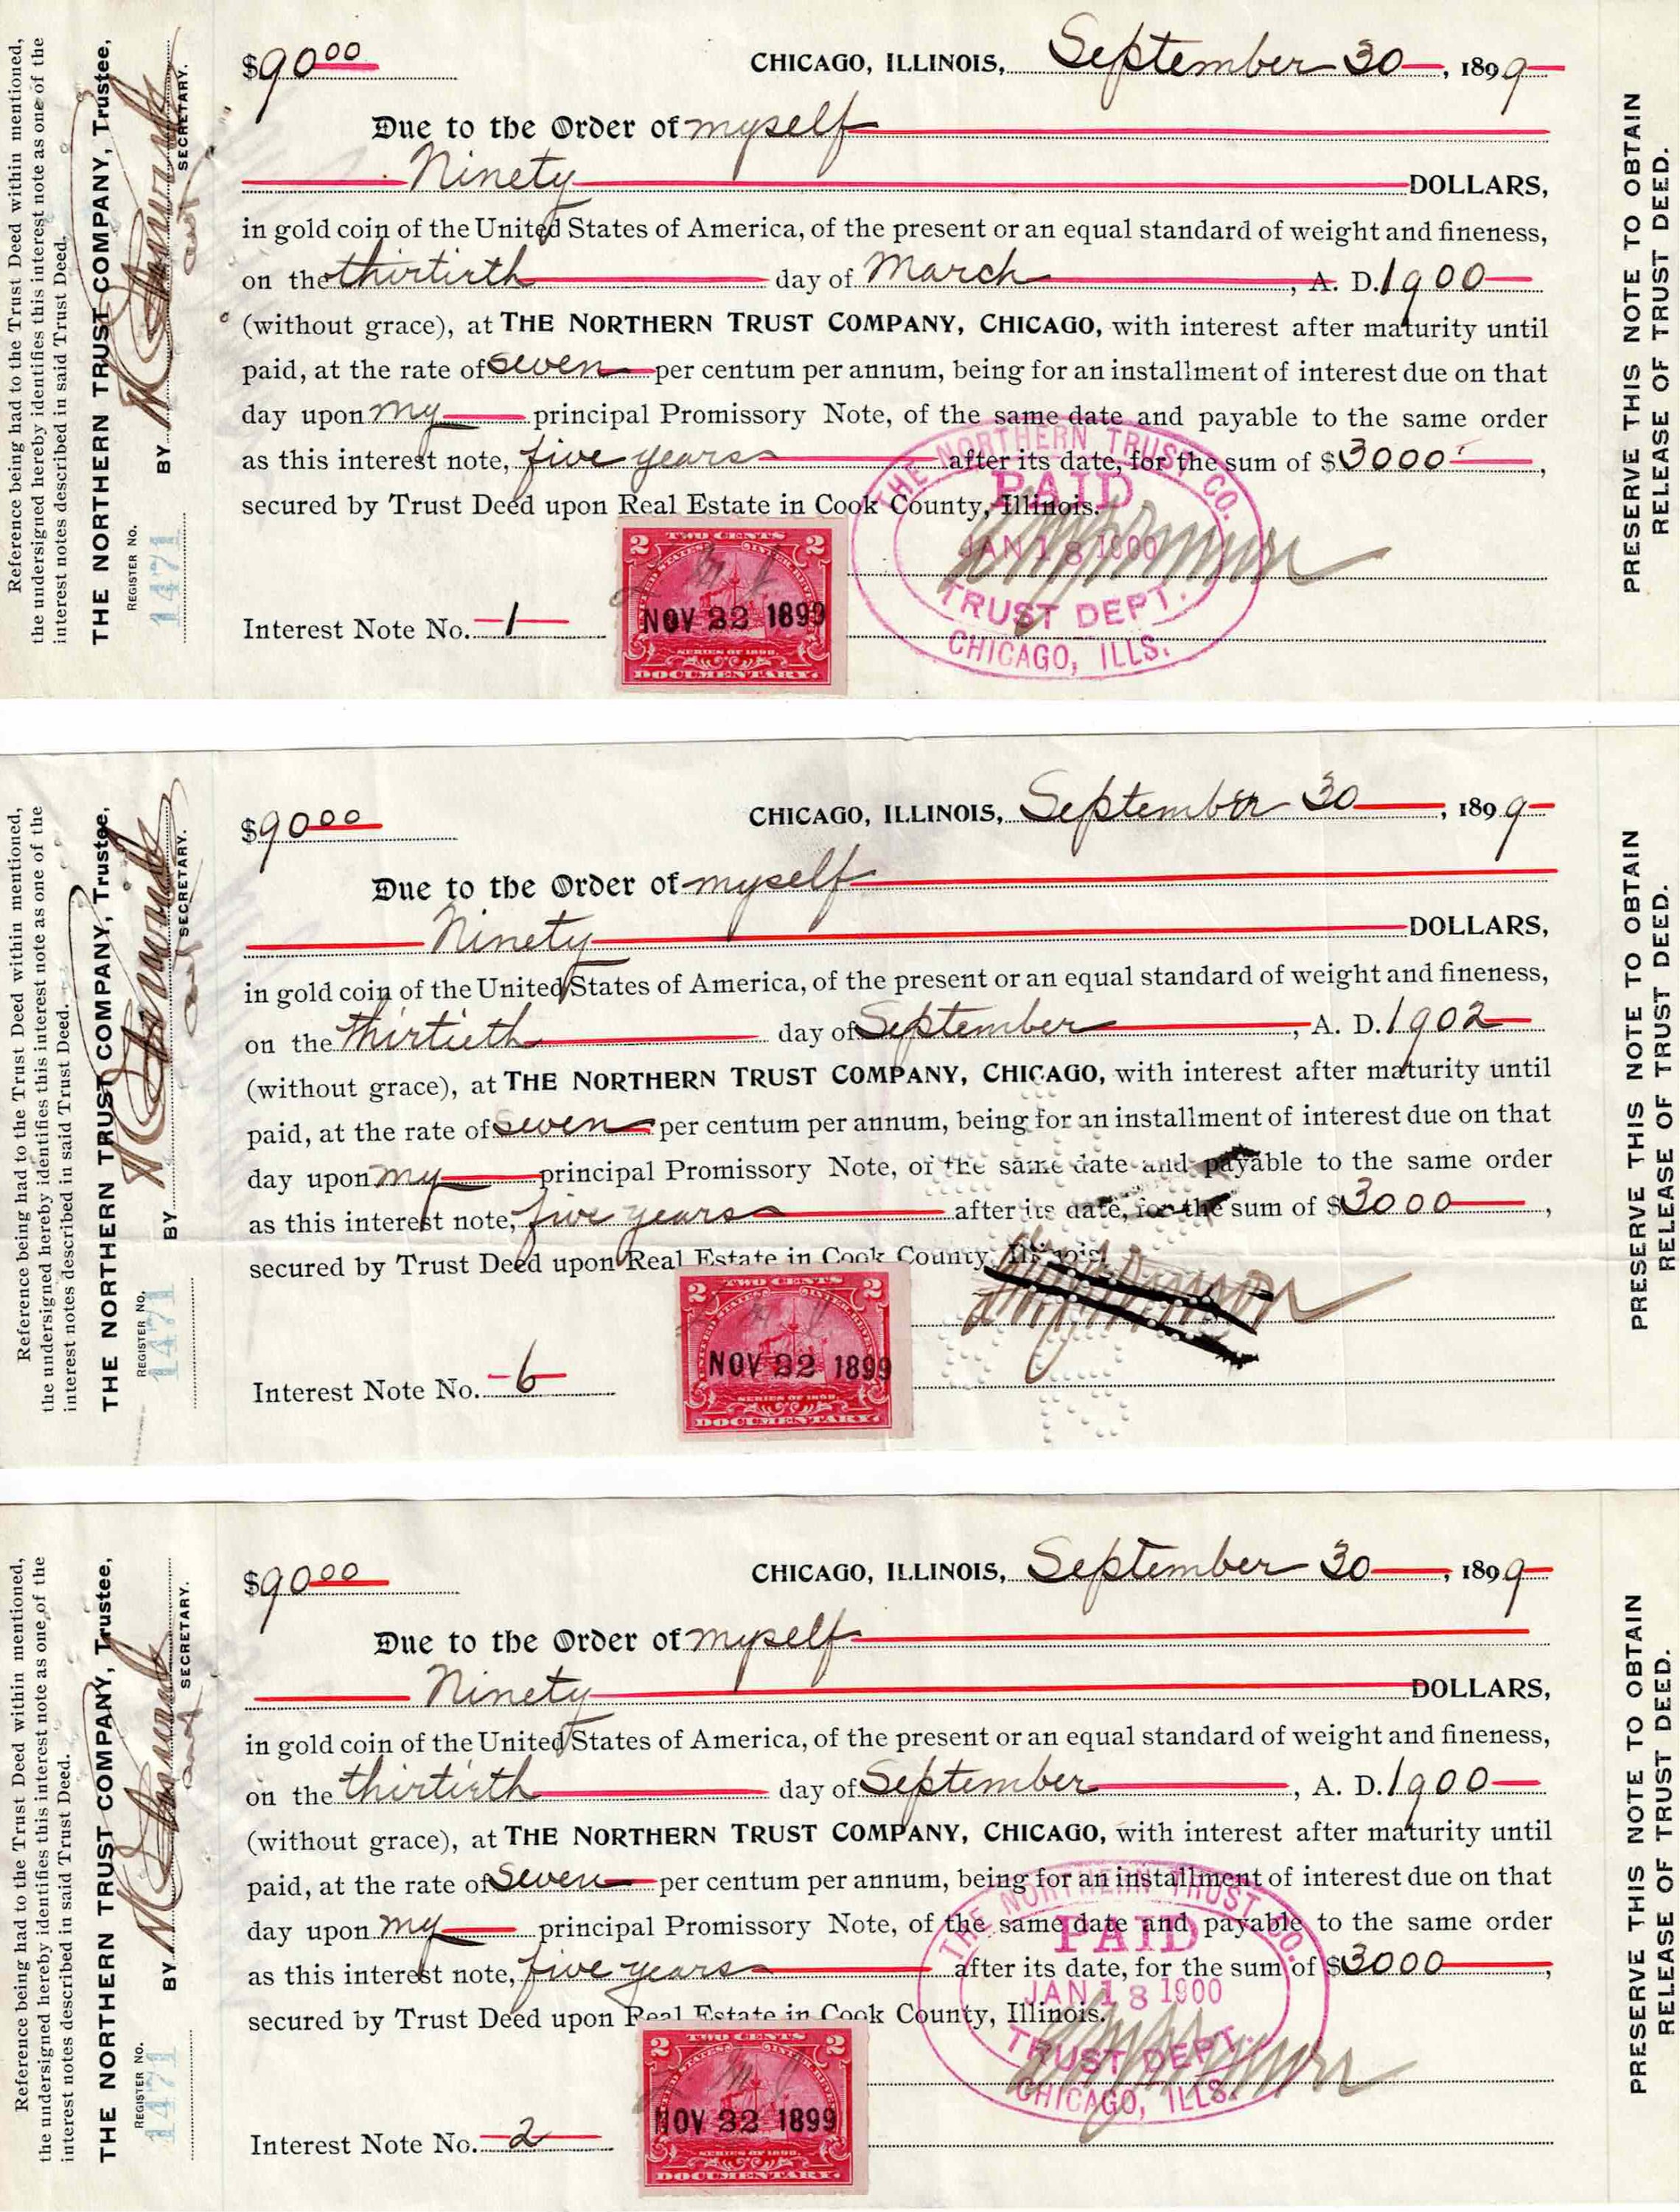 Reference being had to the Trust Deed within mentioned,
the undersigned hereby identifies this interest note as one of the
interest notes described in said Trust Deed.
THE NORTHERN TRUST COMPANY, Trustee,
BY
SECRETARY.
REGISTER NO.
1471
$90.00
CHICAGO, ILLINOIS, September 30, 1899
Due to the Order of myself
Ninety DOLLARS,
in gold coin of the United States of America, of the present or an equal standard of weight and fineness,
on the thirtieth day of March, A. D. 1900
(without grace), at THE NORTHERN TRUST COMPANY, CHICAGO, with interest after maturity until
paid, at the rate of seven per centum per annum, being for an installment of interest due on that
day upon my principal Promissory Note, of the same date and payable to the same order
as this interest note, five years after its date, for the sum of $3000,
secured by Trust Deed upon Real Estate in Cook County, Illinois.
THE NORTHERN TRUST CO.
PAID
JAN 18 1900
TRUST DEPT.
CHICAGO, ILLS.
2 TWO CENTS 2
UNITED STATES INTER. REVENUE
NOV 22 1899
SERIES OF 1898.
DOCUMENTARY.
Interest Note No. 1
PRESERVE THIS NOTE TO OBTAIN
RELEASE OF TRUST DEED.
Reference being had to the Trust Deed within mentioned,
the undersigned hereby identifies this interest note as one of the
interest notes described in said Trust Deed.
THE NORTHERN TRUST COMPANY, Trustee,
BY
SECRETARY.
REGISTER NO.
1471
$90.00
CHICAGO, ILLINOIS, September 30, 1899
Due to the Order of myself
Ninety DOLLARS,
in gold coin of the United States of America, of the present or an equal standard of weight and fineness,
on the thirtieth day of September, A. D. 1902
(without grace), at THE NORTHERN TRUST COMPANY, CHICAGO, with interest after maturity until
paid, at the rate of seven per centum per annum, being for an installment of interest due on that
day upon my principal Promissory Note, of the same date and payable to the same order
as this interest note, five years after its date, for the sum of $3000,
secured by Trust Deed upon Real Estate in Cook County, Illinois.
2 TWO CENTS 2
NOV 22 1899
SERIES OF 1898.
DOCUMENTARY.
Interest Note No. 6
PRESERVE THIS NOTE TO OBTAIN
RELEASE OF TRUST DEED.
Reference being had to the Trust Deed within mentioned,
the undersigned hereby identifies this interest note as one of the
interest notes described in said Trust Deed.
THE NORTHERN TRUST COMPANY, Trustee,
BY
SECRETARY.
REGISTER NO.
1471
$90.00
CHICAGO, ILLINOIS, September 30, 1899
Due to the Order of myself
Ninety DOLLARS,
in gold coin of the United States of America, of the present or an equal standard of weight and fineness,
on the thirtieth day of September, A. D. 1900
(without grace), at THE NORTHERN TRUST COMPANY, CHICAGO, with interest after maturity until
paid, at the rate of seven per centum per annum, being for an installment of interest due on that
day upon my principal Promissory Note, of the same date and payable to the same order
as this interest note, five years after its date, for the sum of $3000,
secured by Trust Deed upon Real Estate in Cook County, Illinois.
THE NORTHERN TRUST CO.
PAID
JAN 18 1900
TRUST DEPT.
CHICAGO, ILLS.
2 TWO CENTS 2
NOV 22 1899
SERIES OF 1898.
DOCUMENTARY.
Interest Note No. 2
PRESERVE THIS NOTE TO OBTAIN
RELEASE OF TRUST DEED.